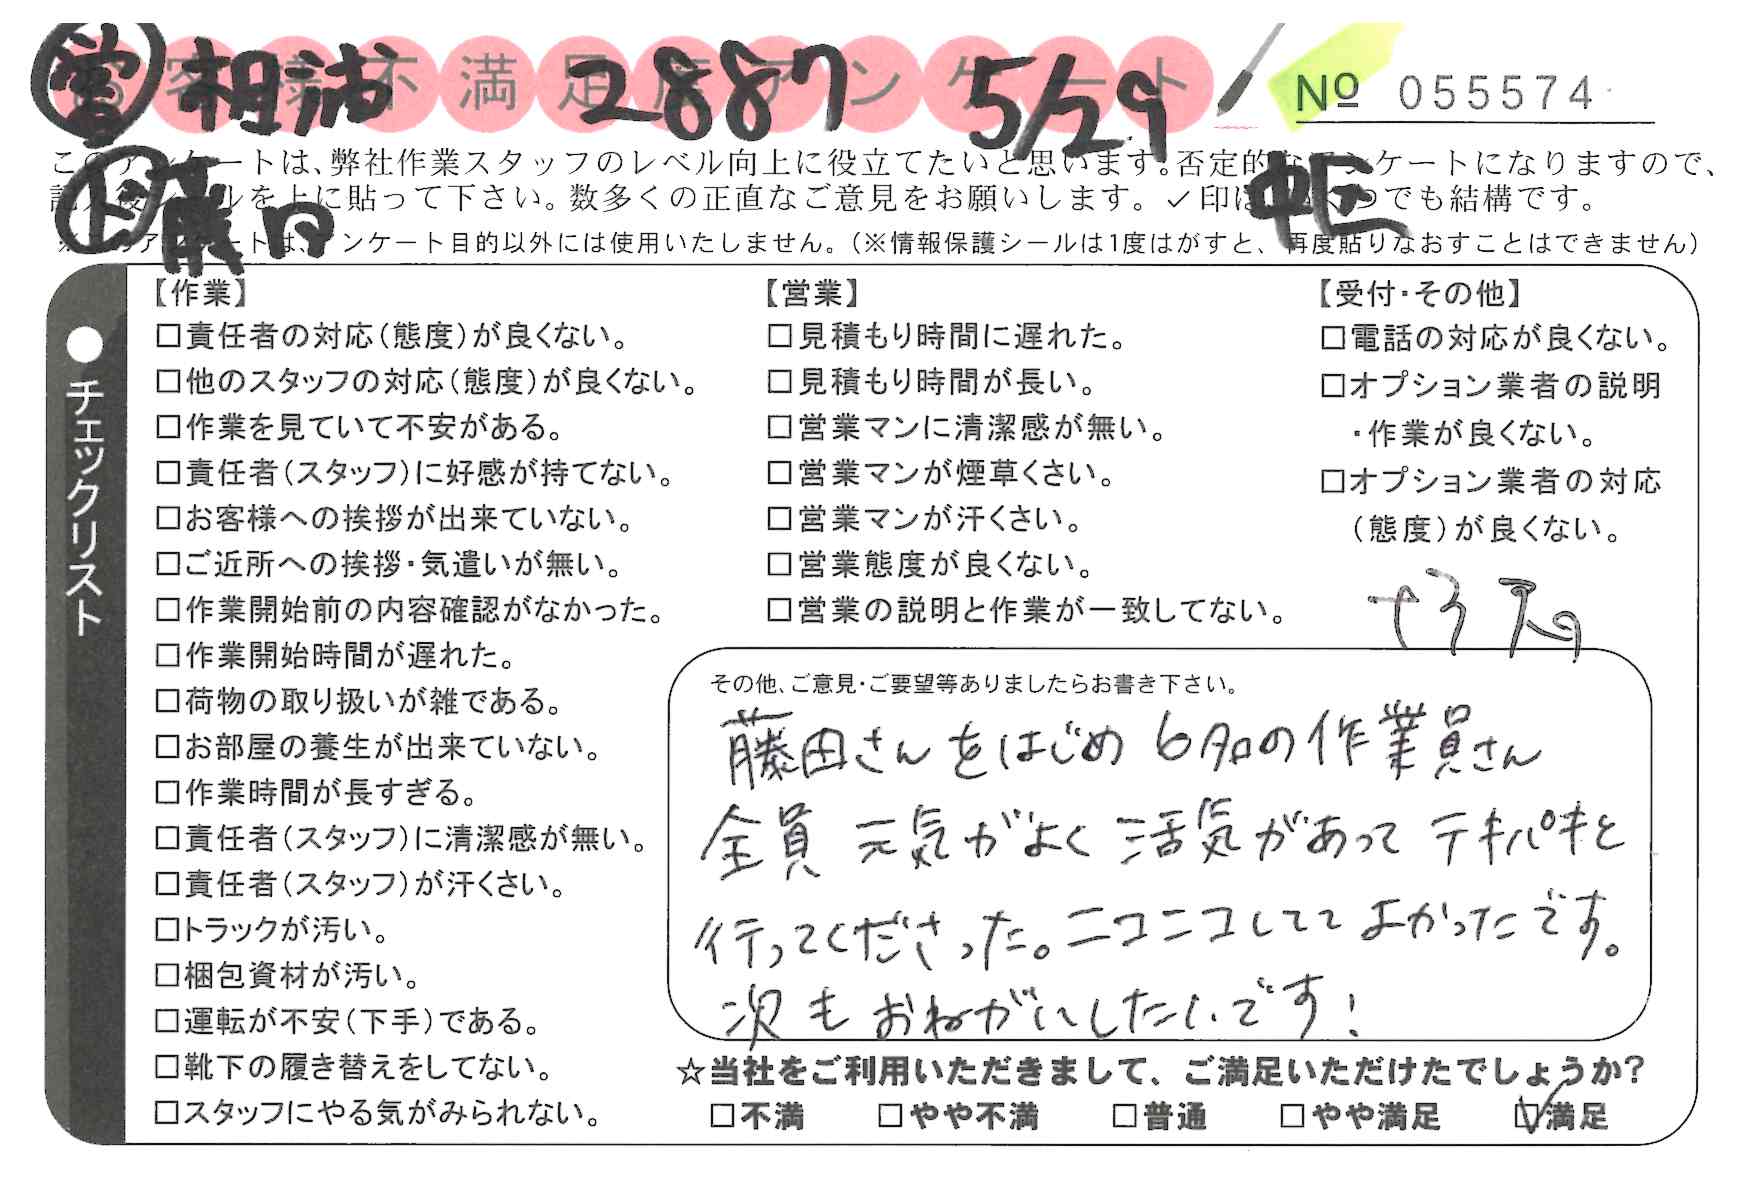 お客様不満足度アンケート
営 相浦 2887 5/29
№ 055574
このアンケートは、弊社作業スタッフのレベル向上に役立てたいと思います。否定的なアンケートになりますので、
ト 藤田 中区
記入後シールを上に貼って下さい。数多くの正直なご意見をお願いします。✓印はいくつでも結構です。
※このアンケートは、アンケート目的以外には使用いたしません。(※情報保護シールは1度はがすと、再度貼りなおすことはできません)
●チェックリスト
【作業】
□責任者の対応(態度)が良くない。
□他のスタッフの対応(態度)が良くない。
□作業を見ていて不安がある。
□責任者(スタッフ)に好感が持てない。
□お客様への挨拶が出来ていない。
□ご近所への挨拶・気遣いが無い。
□作業開始前の内容確認がなかった。
□作業開始時間が遅れた。
□荷物の取り扱いが雑である。
□お部屋の養生が出来ていない。
□作業時間が長すぎる。
□責任者(スタッフ)に清潔感が無い。
□責任者(スタッフ)が汗くさい。
□トラックが汚い。
□梱包資材が汚い。
□運転が不安(下手)である。
□靴下の履き替えをしてない。
□スタッフにやる気がみられない。
【営業】
□見積もり時間に遅れた。
□見積もり時間が長い。
□営業マンに清潔感が無い。
□営業マンが煙草くさい。
□営業マンが汗くさい。
□営業態度が良くない。
□営業の説明と作業が一致してない。
【受付・その他】
□電話の対応が良くない。
□オプション業者の説明
・作業が良くない。
□オプション業者の対応
(態度)が良くない。
その他、ご意見・ご要望等ありましたらお書き下さい。
藤田さんをはじめ6名の作業員さん
全員 元気がよく 活気があって テキパキと
行ってくださった。ニコニコしてて よかったです。
次も おねがいしたいです!
☆当社をご利用いただきまして、ご満足いただけたでしょうか?
□不満 □やや不満 □普通 □やや満足 ☑満足